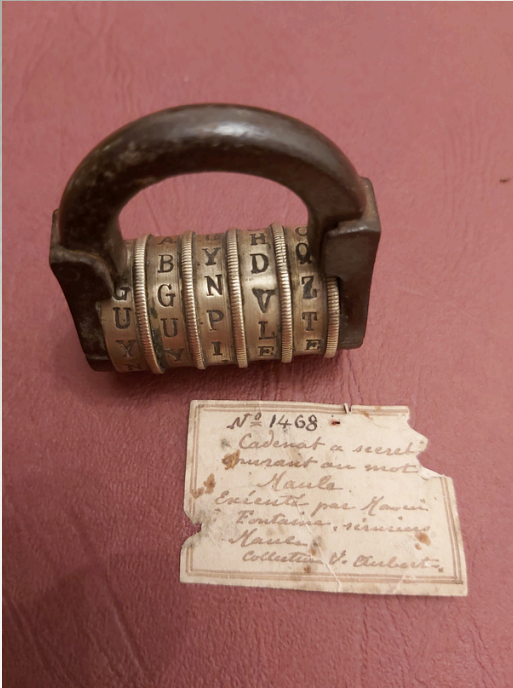 A H C
B Y D Q
G G N V Z
U U P L T
Y Y I E E
Nº 1468
Cadenat a secret
ouvrant au mot
Maule
Exécuté par
Fontaine, serrurier
Maule
Collection V. Aubert.